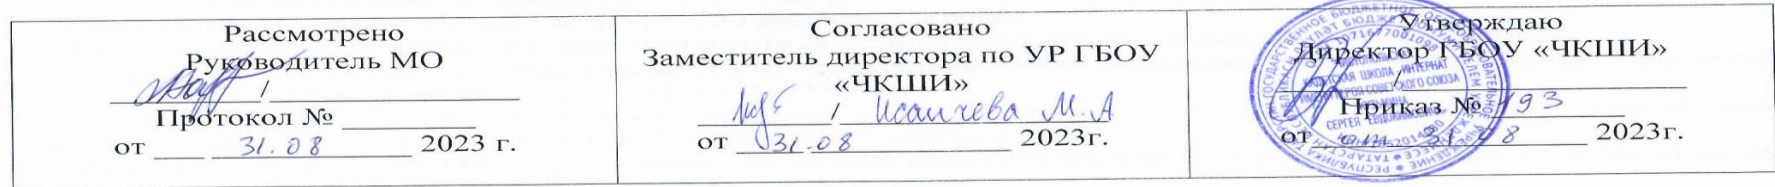 Рассмотрено
Руководитель МО
/
Протокол №
от 31.08 2023 г.
Согласовано
Заместитель директора по УР ГБОУ
«ЧКШИ»
/ Исаичева М.А
от 31.08 2023г.
Утверждаю
Директор ГБОУ «ЧКШИ»
/
Приказ № 193
от 31.08 2023г.